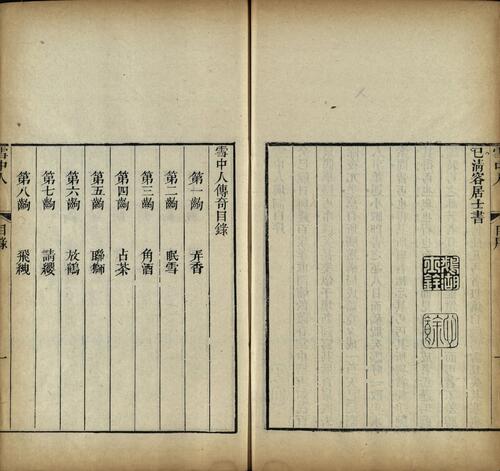 已清容居士書
雪中人傳奇目錄
第一齣 弄香
第二齣 眠雪
第三齣 角酒
第四齣 占茶
第五齣 聯獅
第六齣 放鶴
第七齣 請纓
第八齣 飛覡
雪中人 目錄 一